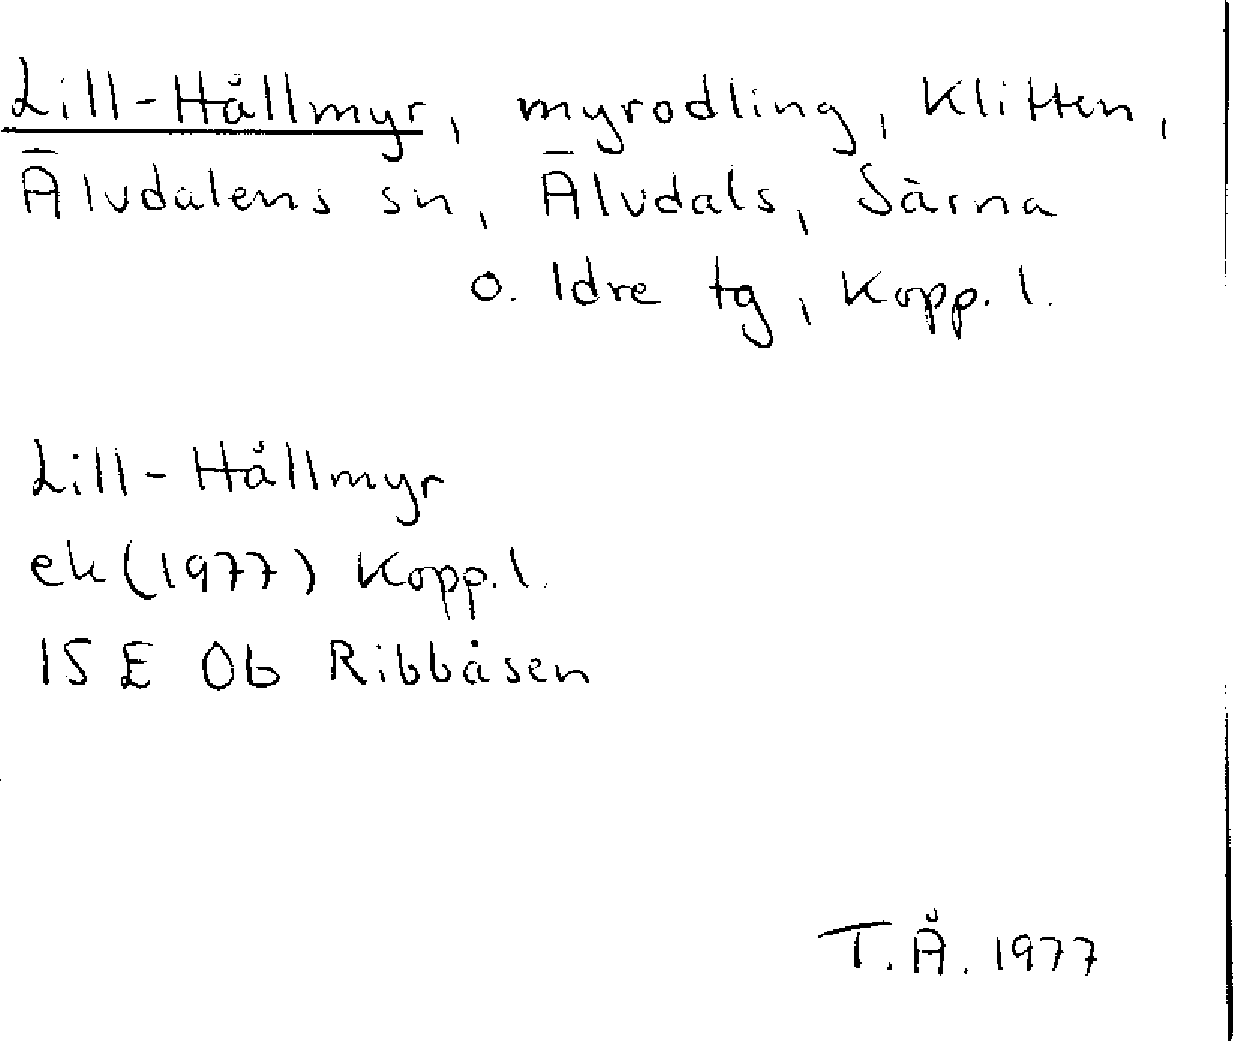 Lill-Hållmyr, myrodling, Klitten,
Älvdalens sn, Älvdals, Särna
o. Idre tg, Kopp. l.
Lill-Hållmyr
ek (1977) Kopp. l.
15 E 0b Ribbåsen
T. Å. 1977